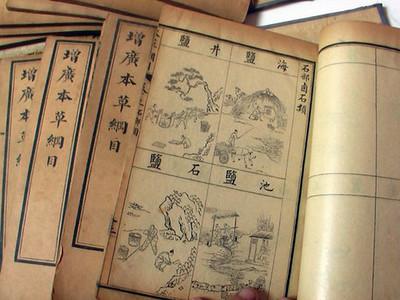 石部鹵石類
海鹽 井鹽
池鹽 石鹽
增廣本草綱目
增廣本草綱目
增廣本草綱目